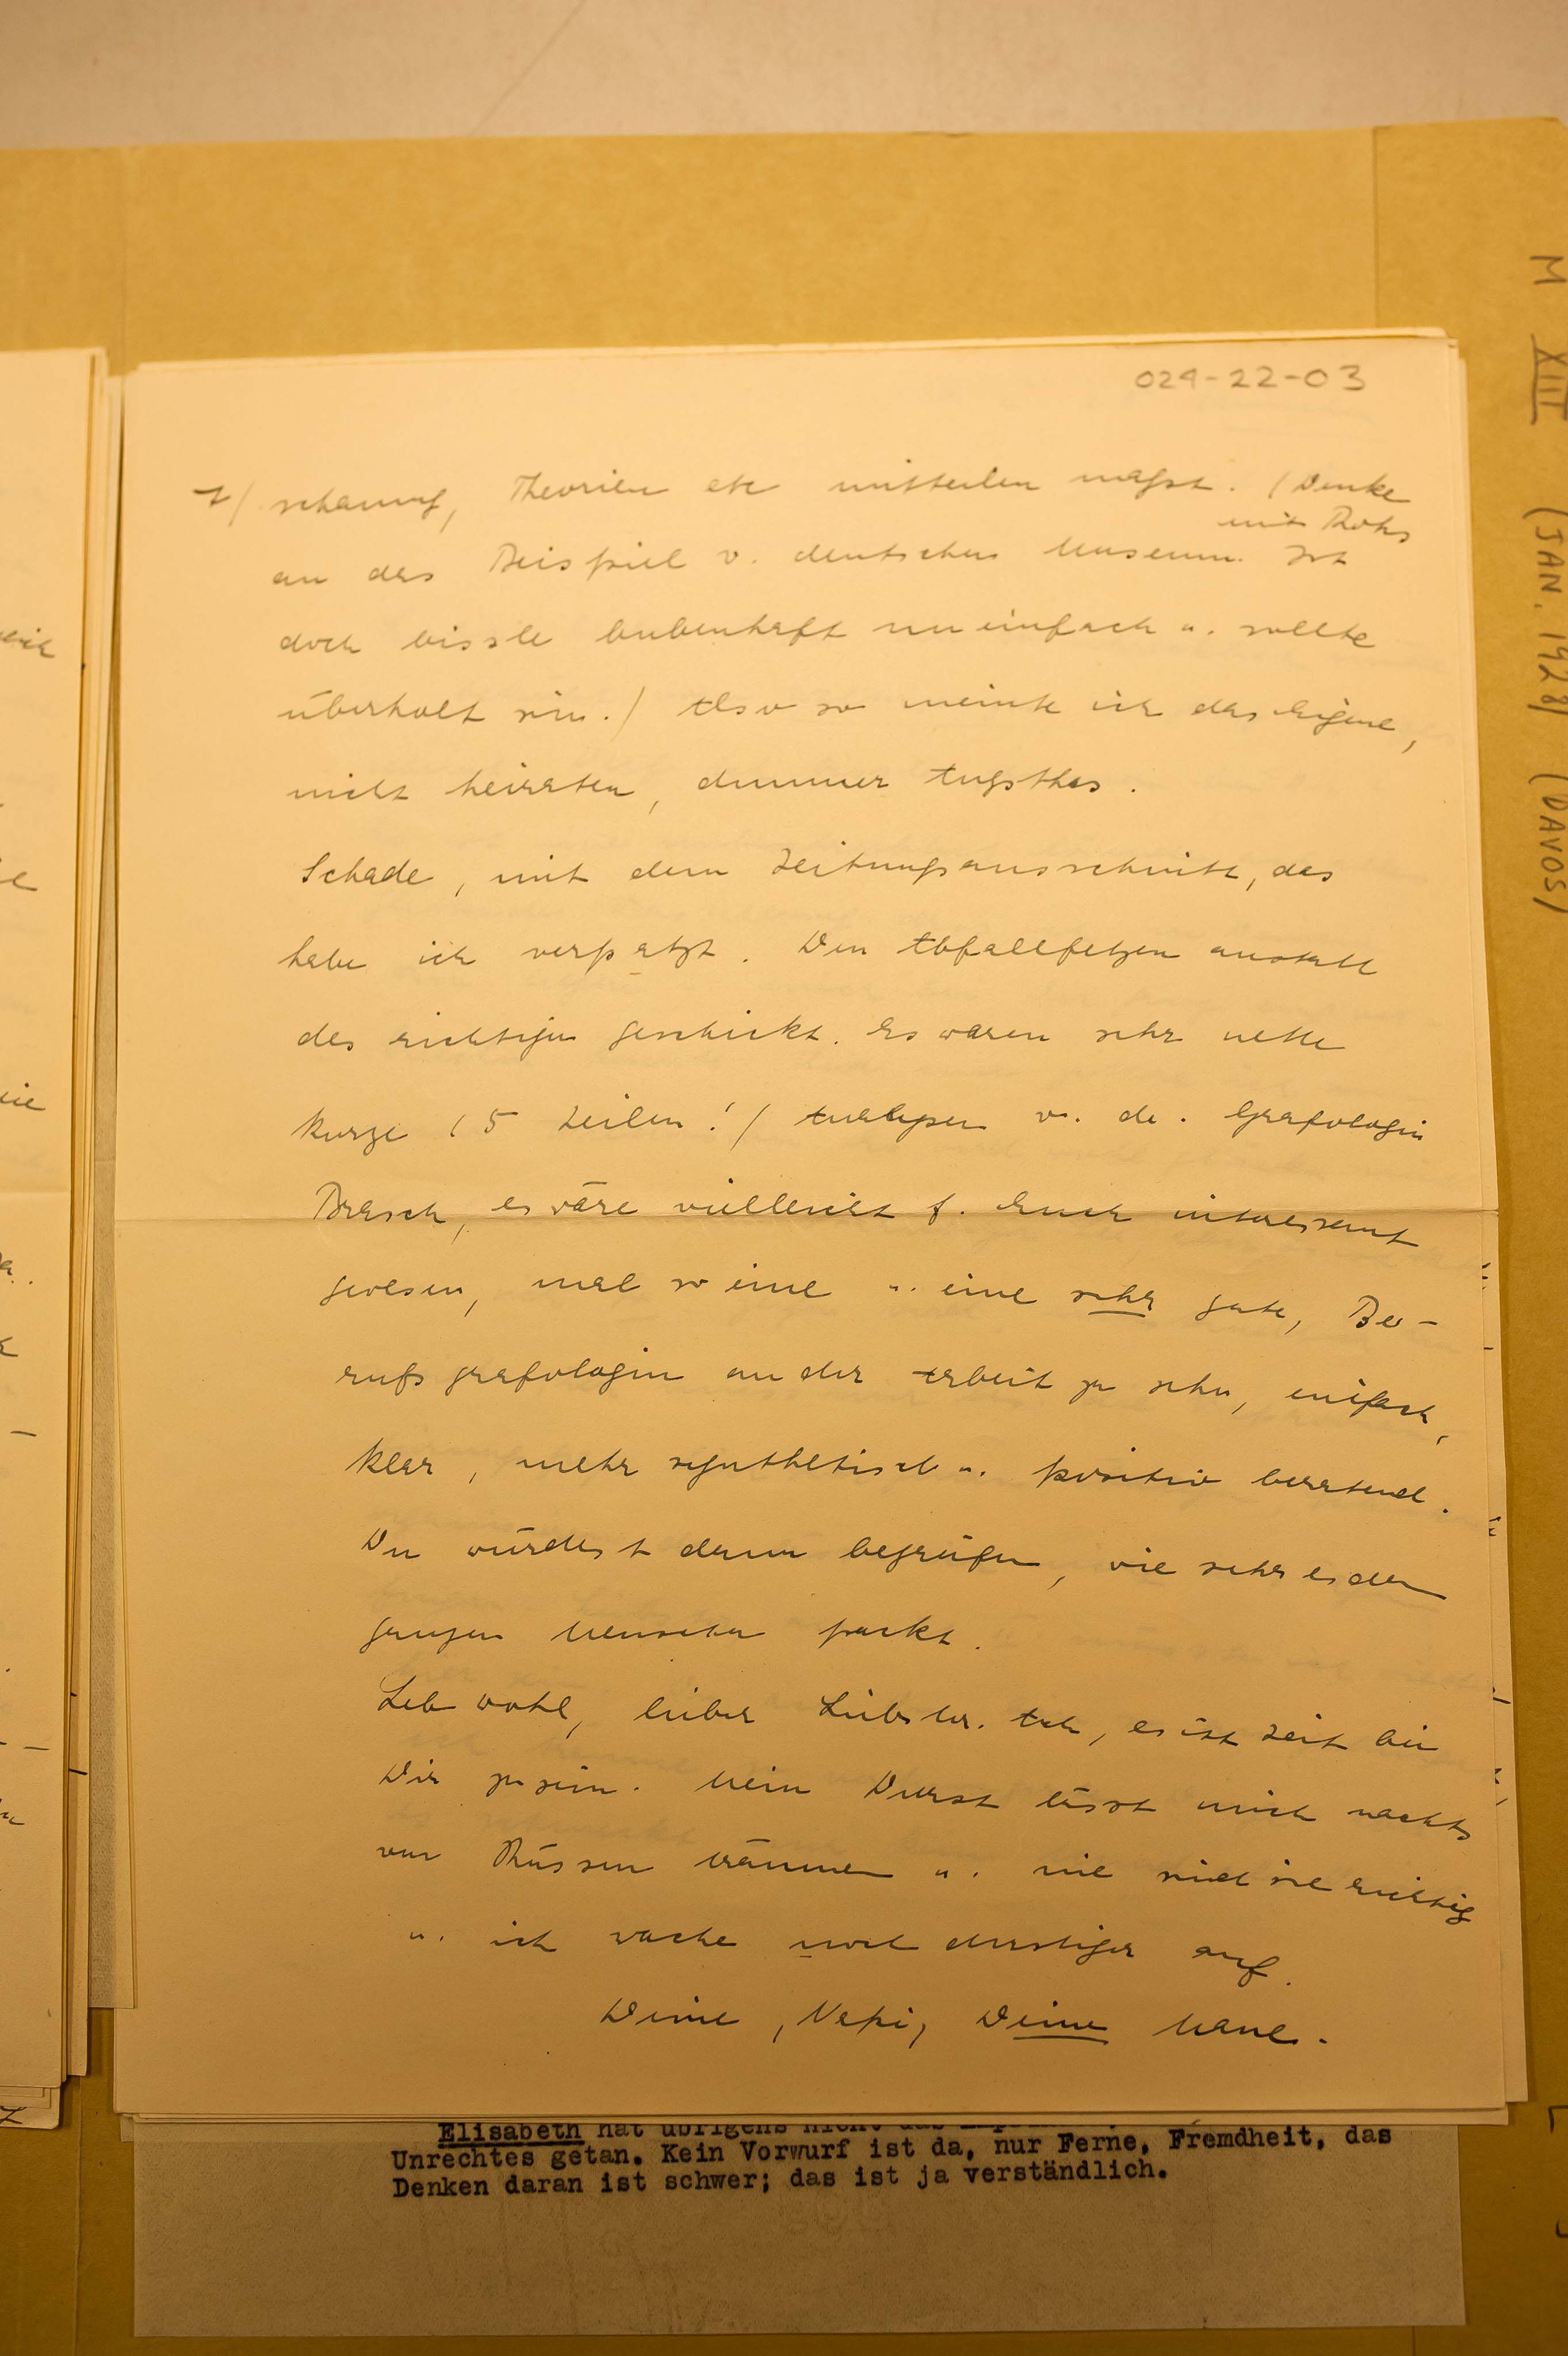 029-22-03
M XIII (JAN. 1928) (DAVOS)
7/ schauung, Theorien etc mitteilen magst. (Denke
mit Rohs
an das Beispiel v. deutschen Museum. Ist
doch bissle bubenhaft uneinfach u. sollte
überholt sein.) Also so meinte ich das Eigene,
nicht heiraten, dummer Angsthas.
Schade, mit dem Zeitungsausschnitt, das
habe ich verpatzt. Den Abfallfetzen anstatt
des richtigen geschickt. Es waren sehr nette
kurze (5 Zeilen!) Analysen v. de. Grafologin
Brasch, es wäre vielleicht f. Euch interessant
gwesen, mal so eine u. eine sehr gute, Be-
rufsgrafologin an der Arbeit zu sehn, einfach,
klar, mehr synthetisch u. positiv beratend.
Du würdest dann begreifen, wie sehr es den
ganzen Menschen packt.
Leb wohl, lieber Liebster. Ach, es ist Zeit bei
Dir zu sein. Mein Durst lässt mich nachts
von Küssen träumen u. nie sind sie richtig
u. ich wache noch durstiger auf.
Deine, Napi, Deine Maue.
Elisabeth hat übrigens nicht das
Unrechtes getan. Kein Vorwurf ist da, nur Ferne, Fremdheit, das
Denken daran ist schwer; das ist ja verständlich.